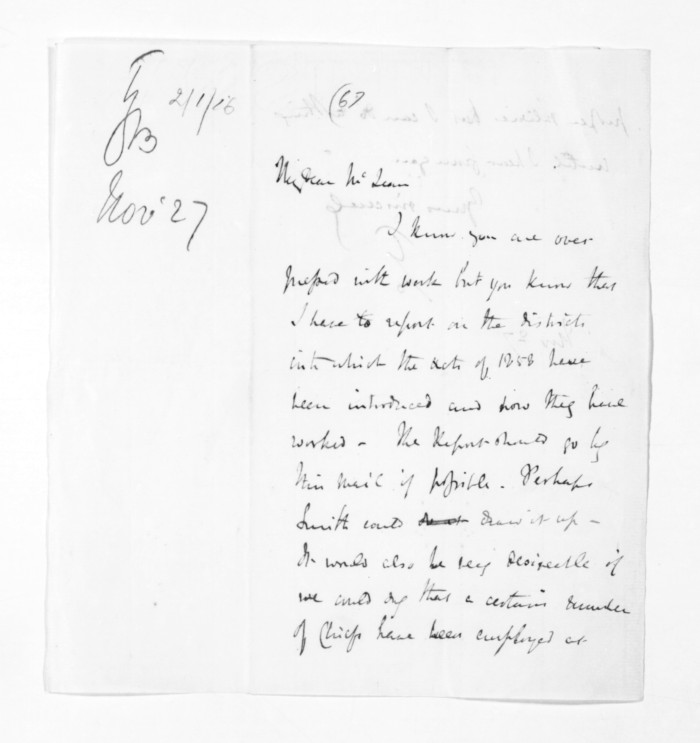 2/1/
GB
Nov 27
(67
My Dear McLean
I know you are over
pressed with work but you know that
I have to report on the districts
into which the acts of 1858 have
been introduced and how they have
worked - The Report should go by
this mail if possible. Perhaps
Smith could draw it up -
It would also be very desireable if
we could say that a certain number
of Chiefs have been employed as